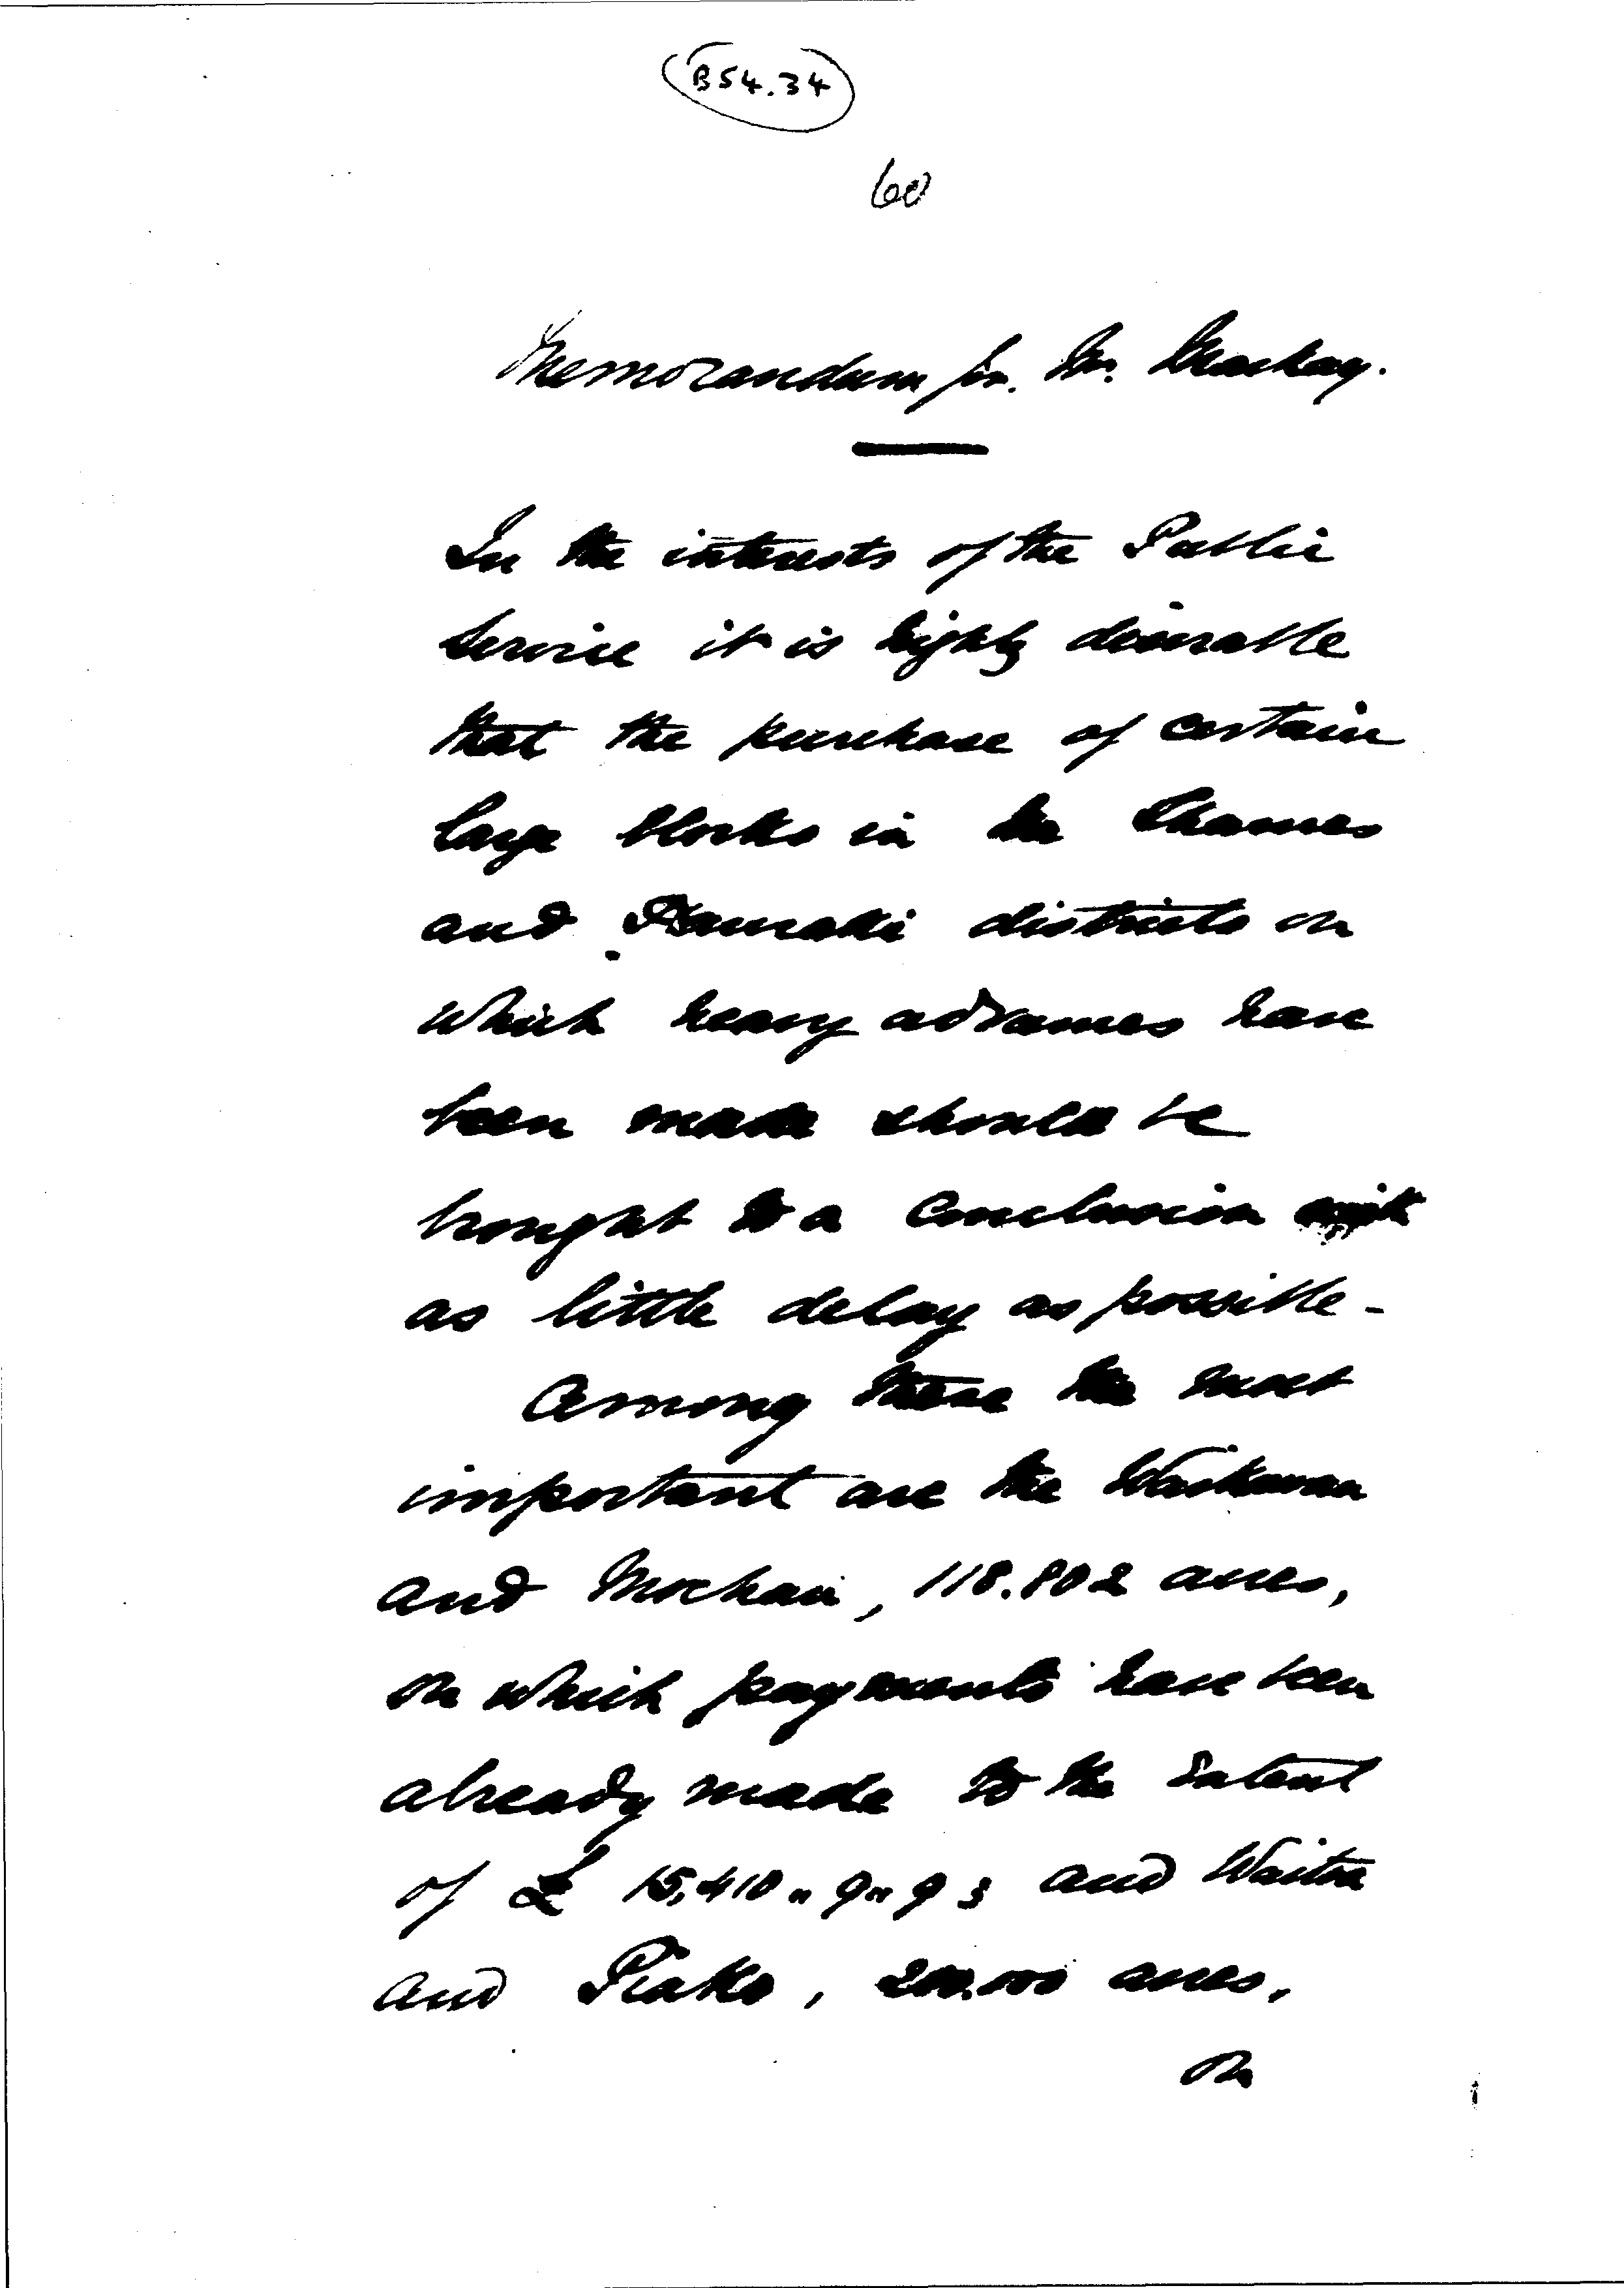 B54.34
60
Memorandum for. Mr. Mackay.
In the interests of the Public
Service it is highly desirable
that the purchase of certain
large blocks in the Thames
and Hauraki districts on
which heavy advances have
been made should be
brought to a conclusion with
as little delay as possible -
Among these the most
important are the Waikawau
and Moehau, 118.802 acres,
on which payments have been
already made to the extent
of £ 15,410 " 9 " 9 ; and Waitoa
and Piako, 200.000 acres,
on